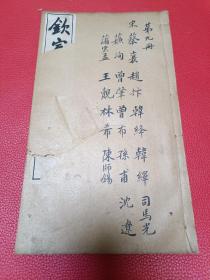 第九册
宋 蔡襄 趙抃 韓絳 韓繹 司馬光
蘇洵 曾鞏 曾布 孫甫 沈遼
蒲宗孟 王覿 林希 陳師錫
欽定